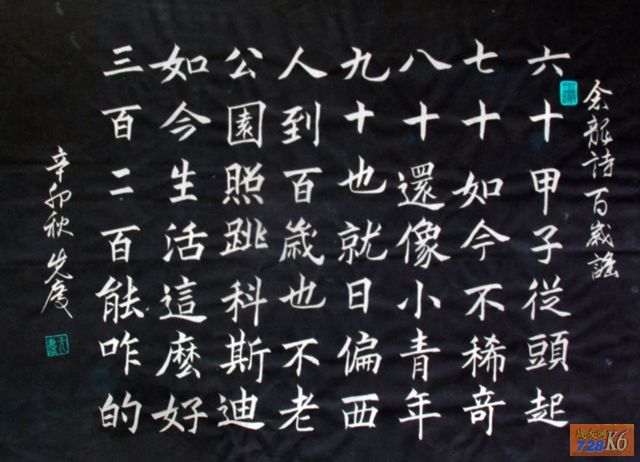 余龍詩百歲謠
六十甲子從頭起
七十如今不稀奇
八十還像小青年
九十也就日偏西
人到百歲也不老
公園照跳科斯迪
如今生活這麼好
三百二百能咋的
辛卯秋 先慶
728K6